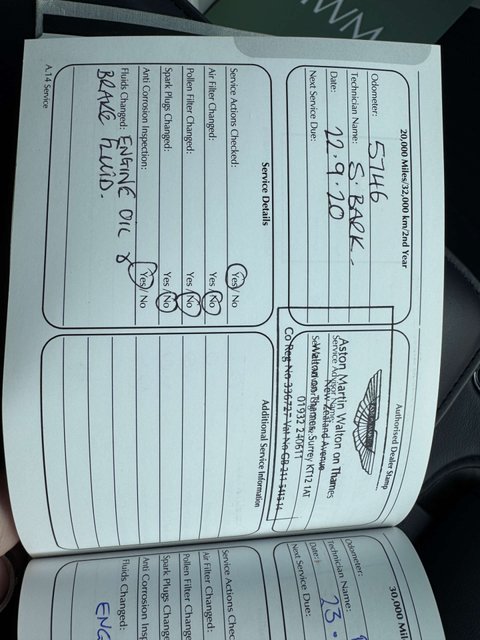 20,000 Miles/32,000 km/2nd Year
Odometer: 5746
Technician Name: S. BARK.
Date: 22.9.20
Next Service Due:
Authorised Dealer Stamp
Aston Martin Walton on Thames
Service Advisor Name:
New Zealand Avenue
Walton on Thames, Surrey KT12 1AT
01932 240611
Co Reg No 336727 Vat No GB 211
Service Details
Service Actions Checked: Yes / No
Air Filter Changed: Yes / No
Pollen Filter Changed: Yes / No
Spark Plugs Changed: Yes / No
Anti Corrosion Inspection: Yes / No
Fluids Changed: ENGINE OIL &
BRAKE FLUID.
Additional Service Information
A.14 Service
30,000 Mi
Odometer:
Technician Name:
Date: 23.
Next Service Due:
Service Actions Chec
Air Filter Changed:
Pollen Filter Change
Spark Plugs Change
Anti Corrosion Insp
Fluids Changed: ENG